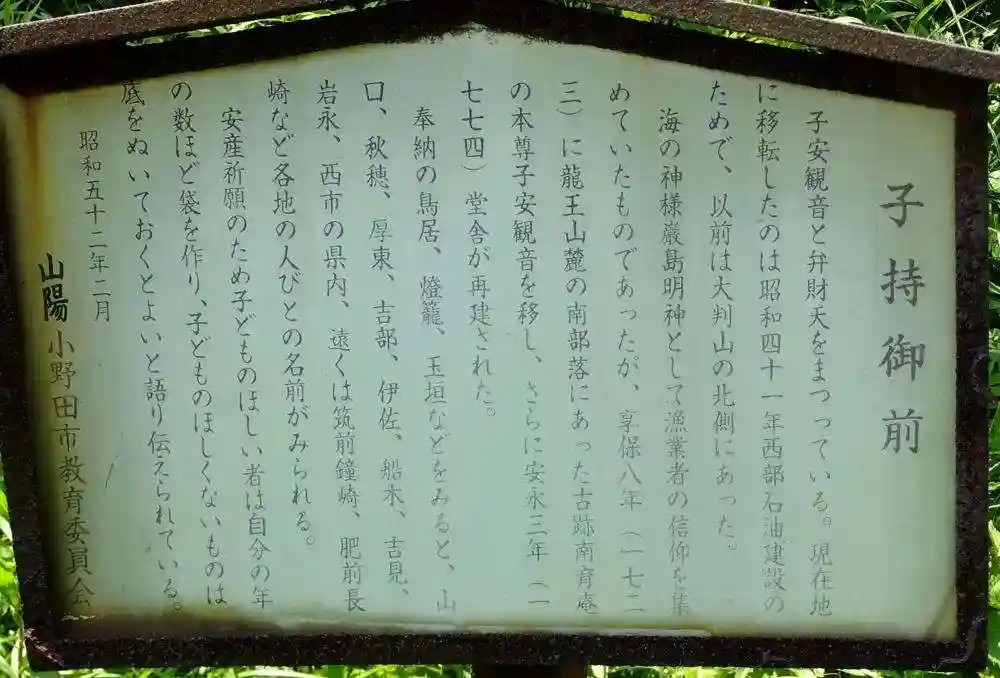 子持御前
子安観音と弁財天をまつっている。現在地
に移転したのは昭和四十一年西部石油建設の
ためで、以前は大判山の北側にあった。
海の神様厳島明神として漁業者の信仰を集
めていたものであったが、享保八年（一七二
三）に龍王山麓の南部落にあった古跡南育庵
の本尊子安観音を移し、さらに安永三年（一
七七四）堂舎が再建された。
奉納の鳥居、燈籠、玉垣などをみると、山
口、秋穂、厚東、吉部、伊佐、船木、吉見、
岩永、西市の県内、遠くは筑前鐘崎、肥前長
崎など各地の人びとの名前がみられる。
安産祈願のため子どものほしい者は自分の年
の数ほど袋を作り、子どものほしくないものは
底をぬいておくとよいと語り伝えられている。
昭和五十二年二月
山陽小野田市教育委員会